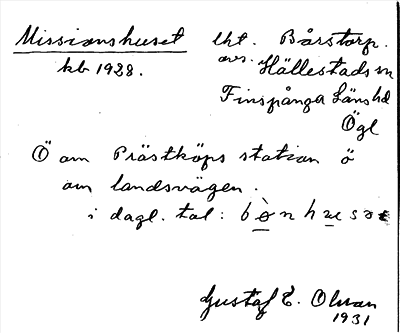 Missionshuset lht. Bårstorp.
kb 1928. avs. Hällestads sn
Finspånga läns hd
Ögl
Ö om Prästköps station ö
om landsvägen.
i dagl. tal: bònhuset
Gustaf E. Olsson
1931